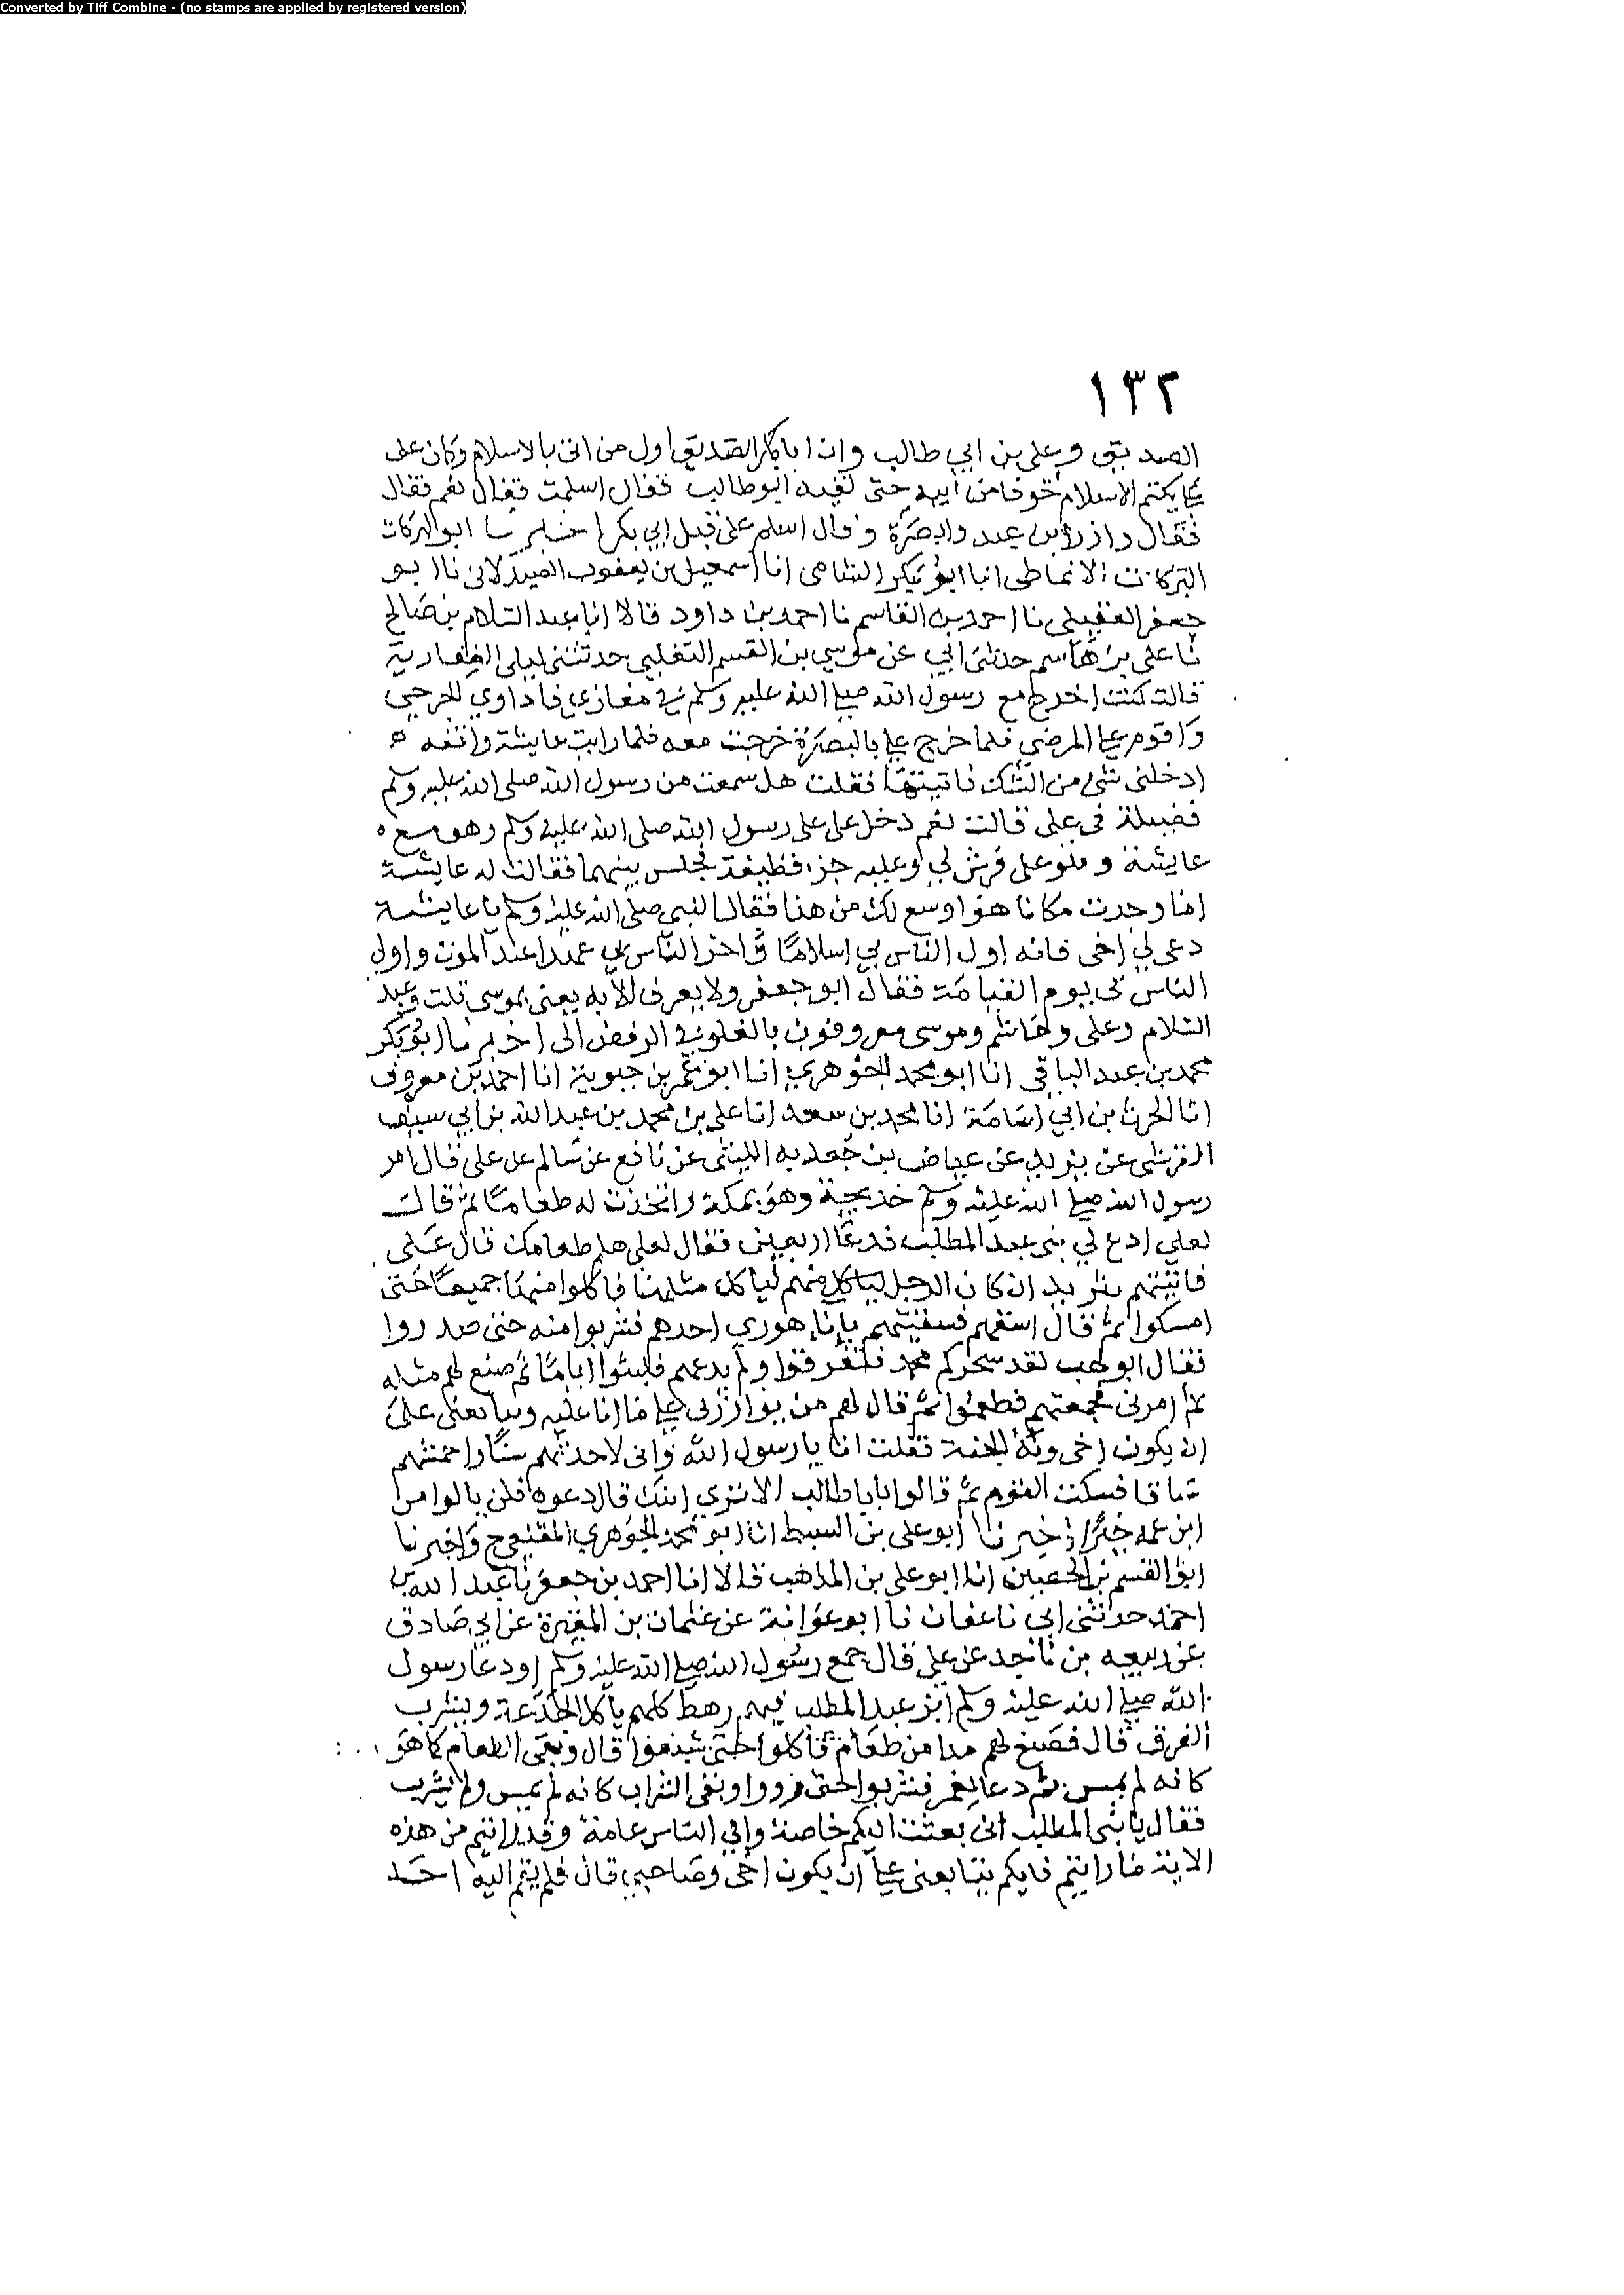 Converted by Tiff Combine - (no stamps are applied by registered version)
١٣٢
الصديق وعلي بن ابي طالب وان ابا بكر الصديق اول من اتى بالاسلام وكان على
يكتم الاسلام خوفا من ابيه حتى لقيه ابو طالب فقال اسلمت فقال نعم فقال
فقال وازر ابن عمك وانصره وقال اسلم على قبل ابي بكر اخبرنا ابو البركات
الانماطي انبا ابو بكر الشامي انا اسمعيل بن يعقوب الصيدلاني نا ابو
جعفر العقيلي نا احمد بن القاسم نا احمد بن داود قالا انا عبد السلام بن صالح
نا على بن هاشم حدثني ابي عن موسى بن القسم التغلبي حدثتني ليلى الغفارية
قالت كنت اخرج مع رسول الله صلى الله عليه وسلم في مغازيه فاداوي الجرحي
واقوم على المرضى فلما خرج على بالبصرة خرجت معه فلما رايت عايشة واقفه
ادخلنى شئ من الشك فاتيتها فقلت هل سمعت من رسول الله صلى الله عليه وسلم
فضيلة في على قالت نعم دخل على على رسول الله صلى الله عليه وسلم وهو مع
عايشة وهو على فرش لي وعليه جرد قطيفة فجلس بينهما فقالت له عايشة
اما وجدت مكانا هو اوسع لك من هذا فقال النبي صلى الله عليه وسلم يا عايشة
دعى لي اخى فانه اول الناس بي اسلاما واخر الناس بي عهدا عند الموت واول
الناس لى يوم القيامة فقال ابو جعفر ولا يعرف الا به يعنى بموسى قلت وعبد
السلام وعلى وهاشم وموسى معروفون بالغلو في الرفض اخبرنا ابو بكر
محمد بن عبد الباقي انا ابو محمد الجوهري انا ابو عمر بن حيوية انا احمد بن معروف
انا الحرث بن ابي اسامة انا محمد بن سعد انا على بن محمد بن عبد الله بن ابي سيف
القرشى عن يزيد عن عياض بن جعدبه الليثى عن نافع عن سالم عن على قال امر
رسول الله صلى الله عليه وسلم خديجة وهو بمكة واتخذت له طعاما ثم قالت
لعلي ادع لي بنى عبد المطلب فدعا اربعين فقال لعلي هلم طعامك قال علي
فاتيتهم بثريد ان كان الرجل لياكل منهم لياكل مثلها فاكلوا منها جميعا حتى
امسكوا ثم قال اسقهم فسقيتهم باناء هو ري احدهم فشربوا منه حتى صدروا
فقال ابو لهب لقد سحركم محمد فتفرقوا ولم يدعهم فلبثوا اياما ثم صنع لهم مثله
ثم امرنى فجمعتهم فطعموا ثم قال لهم من يوازرني على ما انا عليه ويبايعنى على
ان يكون اخى وله الجنة فقلت انا يا رسول الله وانى لاحدثهم سنا واحمشهم
ساقا فسكت القوم ثم قالوا يا با طالب الا ترى ابنك قال دعوه فلن يالوا من
ابن عمه خيرا اخبرنا ابو على بن السبط انا ابو محمد الجوهري ح واخبرنا
ابو القسم بن الحصين انا ابو على بن المذهب قالا انا احمد بن جعفر نا عبد الله بن
احمد حدثني ابي نا عفان نا ابو عوانة عن عثمان بن المغيرة عن ابي صادق
عن ربيعه بن ناجد عن علي قال جمع رسول الله صلى الله عليه وسلم اودعا رسول
الله صلى الله عليه وسلم بنى عبد المطلب فيهم رهط كلهم ياكل الجذعة ويشرب
الفرق قال فصنع لهم مدا من طعام فاكلوا حتى شبعوا قال وبقى الطعام كما هو
كانه لم يمس ثم دعا بغمر فشربوا حتى رووا وبقى الشراب كانه لم يمس ولم يشرب
فقال يا بنى المطلب انى بعثت اليكم خاصة والى الناس عامة وقد رايتم من هذه
الاية ما رايتم فايكم يبايعنى على ان يكون اخى وصاحبي قال فلم يقم اليه احد